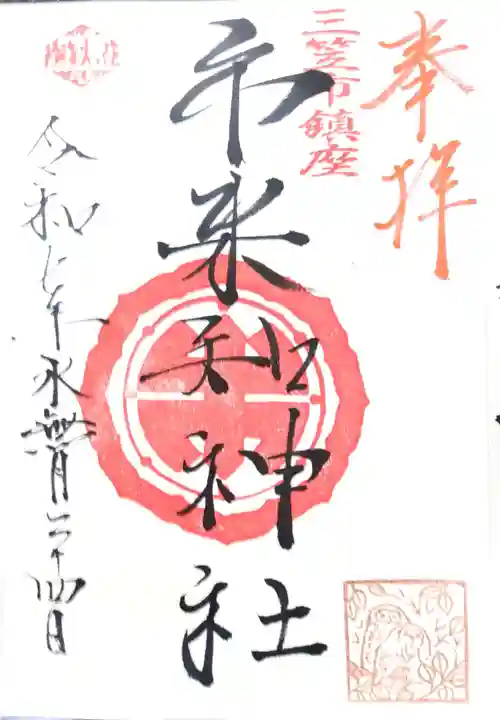 奉拝
三笠市鎮座
市来知神社
令和七年水無月二十四日